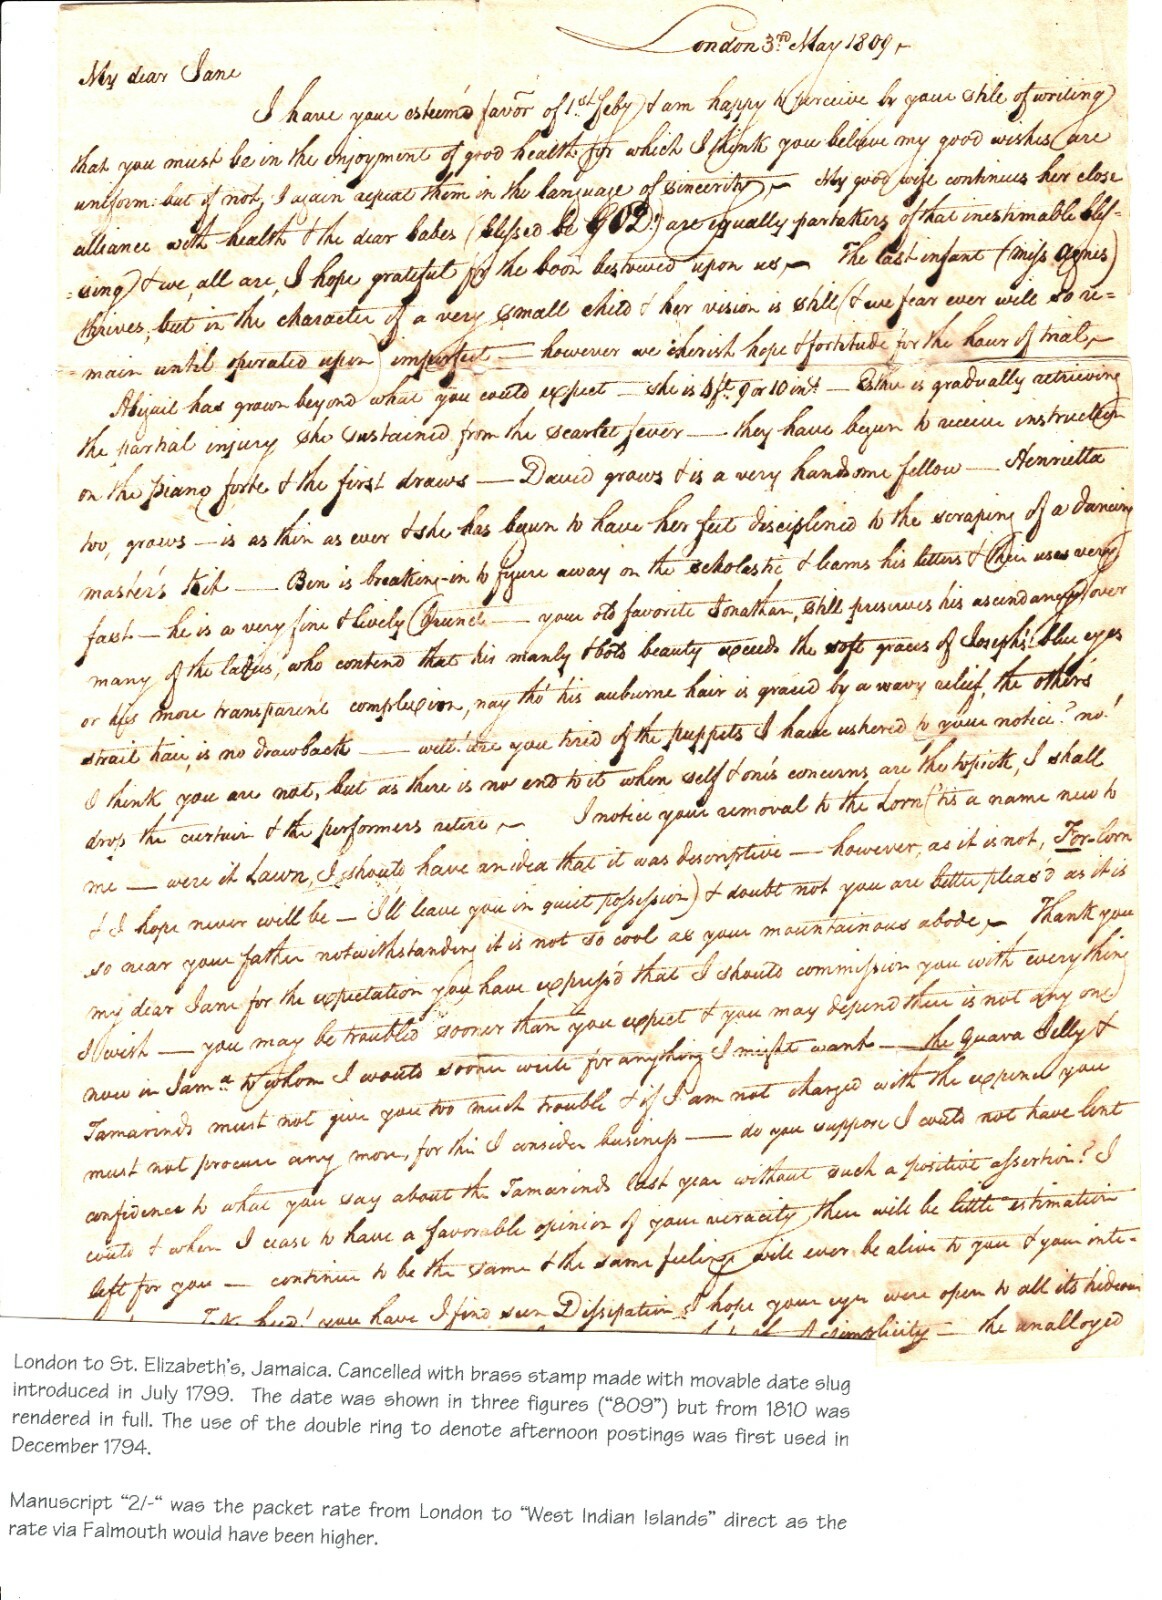 London 3rd May 1809
My dear Jane
I have your esteem'd favor of 1st Feby & am happy to perceive by your stile of writing
that you must be in the enjoyment of good health for which I think you believe my good wishes are
uniform: but if not, I again repeat them in the language of sincerity My good wife continues her close
alliance with health & the dear babes (blessed be GOD!) are equally partakers of that inestimable bles=
=sing & we, all are, I hope grateful for the boon bestowed upon us The last infant (Miss Agnes)
thrives, but in the character of a very small child & her vision is still (& we fear ever will so re=
=main until operated upon) imperfect — however we cherish hope & fortitude for the hour of trial
Abijail has grown beyond what you could expect — she is 4 ft 9 or 10 ins — Esther is gradually retrieving
the partial injury she sustained from the scarlet fever — they have begun to receive instruction
on the piano forte & the first draws — David grows & is a very handsome fellow — Henrietta
too, grows — is as thin as ever & she has begun to have her feet disciplined to the scraping of a dancing
master's kit — Ben is breaking-in to figure away on the scholastic & learns his letters & their uses very
fast — he is a very fine & lively — your old favorite Jonathan, still preserves his ascendancy over
many of the ladies, who contend that his manly & bold beauty exceeds the soft graces of Joseph's blue eyes
or his more transparent complexion, nay tho' his auburne hair is graced by a wavy relief, the other's
strait hair, is no drawback — well! are you tired of the puppets I have ushered to your notice? no!
I think you are not, but as there is no end to it when self & one's concerns are the topick, I shall
drop the curtain & the performers retire I notice your removal to the Lorn ('tis a name new to
me — were it Lawn, I should have an idea that it was descriptive — however, as it is not, For-lorn
& I hope never will be — I'll leave you in quiet possession) & doubt not you are better pleas'd as it is
so near your father notwithstanding it is not so cool as your mountainous abode Thank you
my dear Jane for the expectation you have express'd that I should commission you with everything
I wish — you may be troubled sooner than you expect & you may depend there is not any one
now in Jama to whom I would sooner write for anything I might want — the Guava Jelly &
Tamarinds must not give you too much trouble & if I am not charged with the expence you
must not procure any more, for this I consider business — do you suppose I could not have lent
confidence to what you say about the Tamarinds last year without such a positive assertion? I
could & when I cease to have a favorable opinion of your veracity, there will be little estimation
left for you — continue to be the same & the same feelings will ever be alive to you & your inte=
you have I find seen Dissipation I hope your eyes were open to all its hideous
simplicity — the unalloyed
London to St. Elizabeth's, Jamaica. Cancelled with brass stamp made with movable date slug
introduced in July 1799. The date was shown in three figures ("809") but from 1810 was
rendered in full. The use of the double ring to denote afternoon postings was first used in
December 1794.
Manuscript "2/-" was the packet rate from London to "West Indian Islands" direct as the
rate via Falmouth would have been higher.